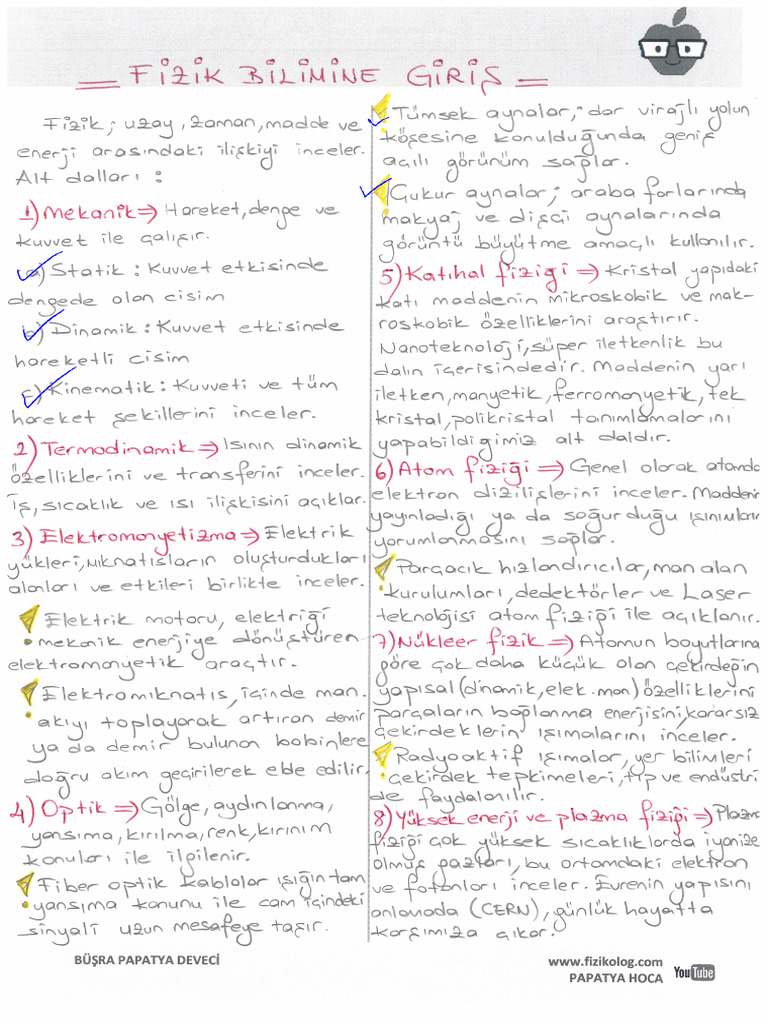 FİZİK BİLİMİNE GİRİŞ
Fizik; uzay, zaman, madde ve
enerji arasındaki ilişkiyi inceler.
Alt dalları:
1) Mekanik => Hareket, denge ve
kuvvet ile çalışır.
a) Statik: Kuvvet etkisinde
dengede olan cisim
b) Dinamik: Kuvvet etkisinde
hareketli cisim
c) Kinematik: Kuvveti ve tüm
hareket şekillerini inceler.
2) Termodinamik => Isının dinamik
özelliklerini ve transferini inceler.
İş, sıcaklık ve ısı ilişkisini açıklar.
3) Elektromanyetizma => Elektrik
yükleri, mıknatısların oluşturdukları
alanları ve etkileri birlikte inceler.
Elektrik motoru, elektriği
mekanik enerjiye dönüştüren
elektromanyetik araçtır.
Elektromıknatıs, içinde man.
akıyı toplayarak artıran demir
ya da demir bulunan bobinlere
doğru akım geçirilerek elde edilir.
4) Optik => Gölge, aydınlanma,
yansıma, kırılma, renk, kırınım
konuları ile ilgilenir.
Fiber optik kablolar ışığın tam
yansıma kanunu ile cam içindeki
sinyali uzun mesafeye taşır.
Tümsek aynalar; dar virajlı yolun
köşesine konulduğunda geniş
açılı görünüm sağlar.
Çukur aynalar; araba farlarında
makyaj ve dişçi aynalarında
görüntü büyütme amaçlı kullanılır.
5) Katıhal fiziği => Kristal yapıdaki
katı maddenin mikroskobik ve mak-
roskobik özelliklerini araştırır.
Nanoteknoloji, süper iletkenlik bu
dalın içerisindedir. Maddenin yarı
iletken, manyetik, ferromanyetik, tek
kristal, polikristal tanımlamalarını
yapabildiğimiz alt daldır.
6) Atom fiziği => Genel olarak atomda
elektron dizilişlerini inceler. Maddenin
yayınladığı ya da soğurduğu ışınımların
yorumlanmasını sağlar.
Parçacık hızlandırıcılar, man alan
kurulumları, dedektörler ve Laser
teknolojisi atom fiziği ile açıklanır.
7) Nükleer fizik => Atomun boyutlarına
göre çok daha küçük olan çekirdeğin
yapısal (dinamik, elek. man) özelliklerini
parçaların bağlanma enerjisini, kararsız
çekirdeklerin ışımalarını inceler.
Radyoaktif ışımalar, yer bilimleri
çekirdek tepkimeleri, tıp ve endüstri
de faydalanılır.
8) Yüksek enerji ve plazma fiziği => Plazma
fiziği çok yüksek sıcaklıklarda iyonize
olmuş gazları, bu ortamdaki elektron
ve fotonları inceler. Evrenin yapısını
anlamada (CERN), günlük hayatta
karşımıza çıkar.
BÜŞRA PAPATYA DEVECİ
www.fizikolog.com
PAPATYA HOCA YouTube